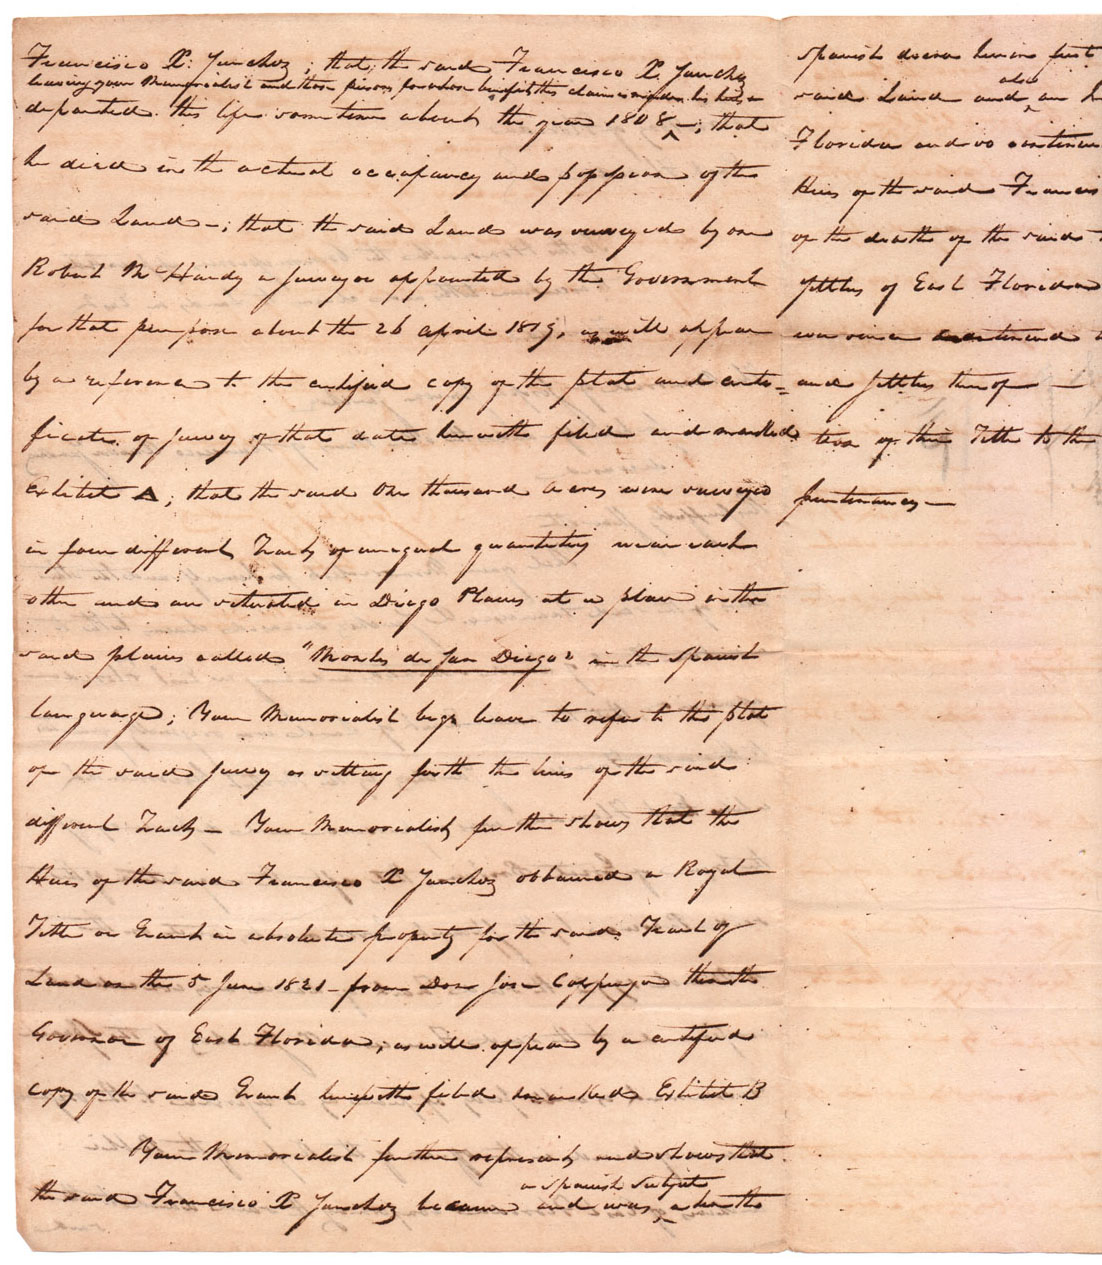 Francisco X. Sanchez; that, the said Francisco X. Sanchez
leaving your Memorialist and those persons for whose benefit this claim is made his heirs
departed this life sometime about the year 1808 —; that
he died in the actual occupancy and possession of the
said Land —; that the said Land was surveyed by one
Robert McHardy a Surveyor appointed by the Government
for that purpose about the 26 April 1819, as will appear
by a reference to the certified copy of the plat and certi=
ficate of Survey of that date herewith filed and marked
Exhibit A; that the said One thousand acres were surveyed
in four different Tracts of unequal quantities near each
other and are situated in Diego Plains at a place in the
said plains called "Montes de San Diego" in the Spanish
language; Your Memorialist begs leave to refer to the plat
of the said Survey as setting forth the lines of the said
different Tracts — Your Memorialist further shows that the
Heirs of the said Francisco X Sanchez obtained a Royal
Title or Grant in absolute property for the said Tract of
Land on the 5 June 1821 — from Don Jose Coppinger then the
Governor of East Florida; as will appear by a certified
copy of the said Grant herewith filed marked Exhibit B
Your Memorialist further represents and shows that
a Spanish Subject
the said Francisco X Sanchez became and was when the
Spanish first
also
said Land and an
Florida and so continued
Heirs of the said Francis
of the death of the said
settlers of East Florida
ever since continued
and settlers thereof —
tion of their Title to the
purtenances —